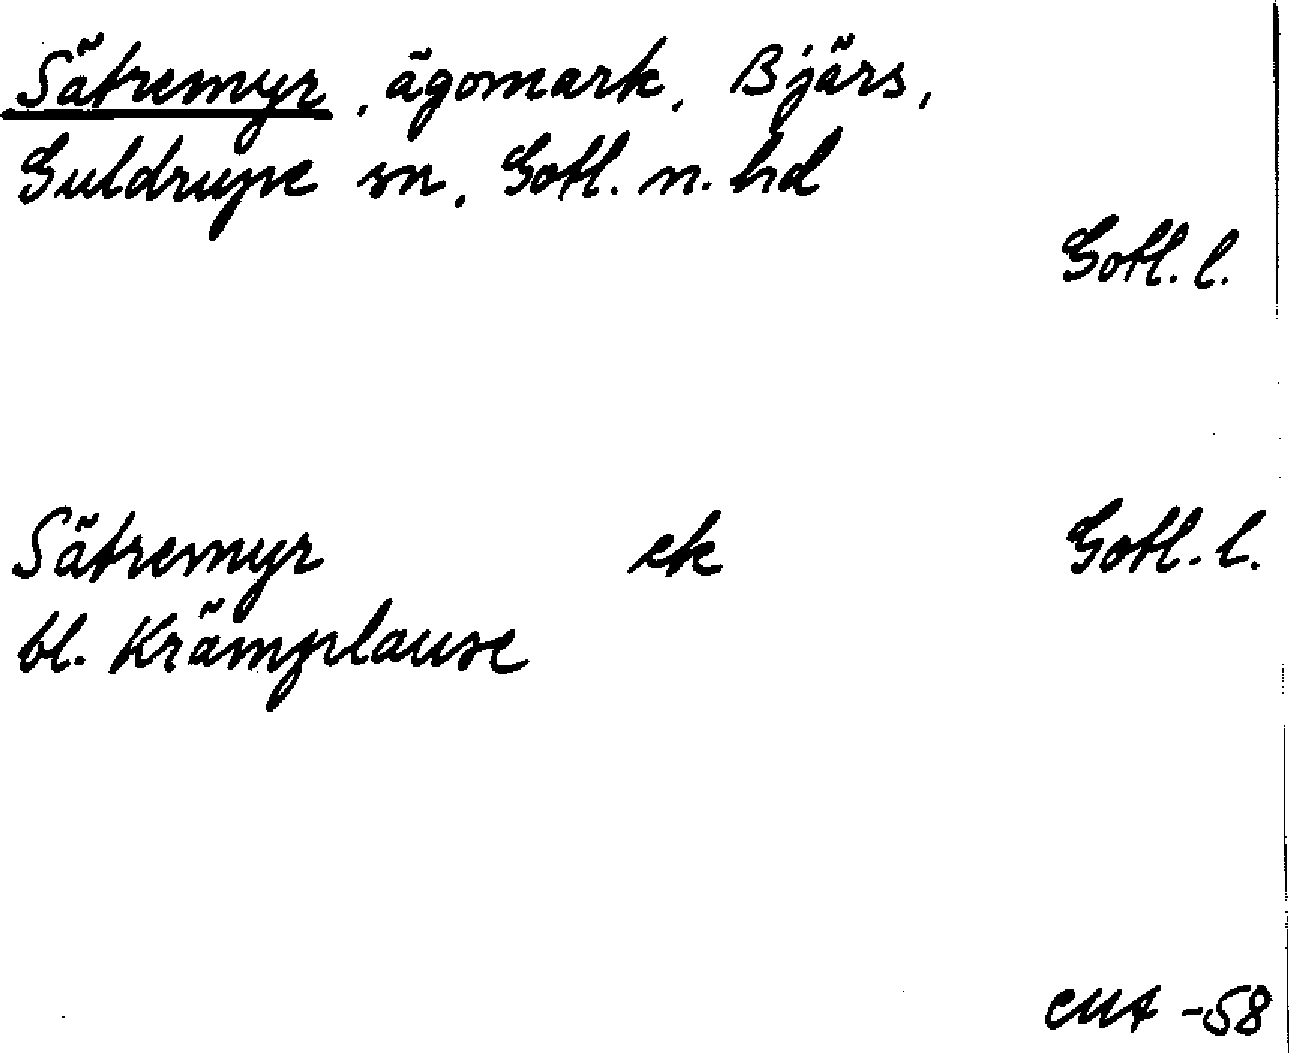 Sätremyr, ägomark, Bjärs,
Guldrupe sn, Gotl. n. hd
Gotl. l.
Sätremyr ek Gotl. l.
bl. Krämplause
EMA -58